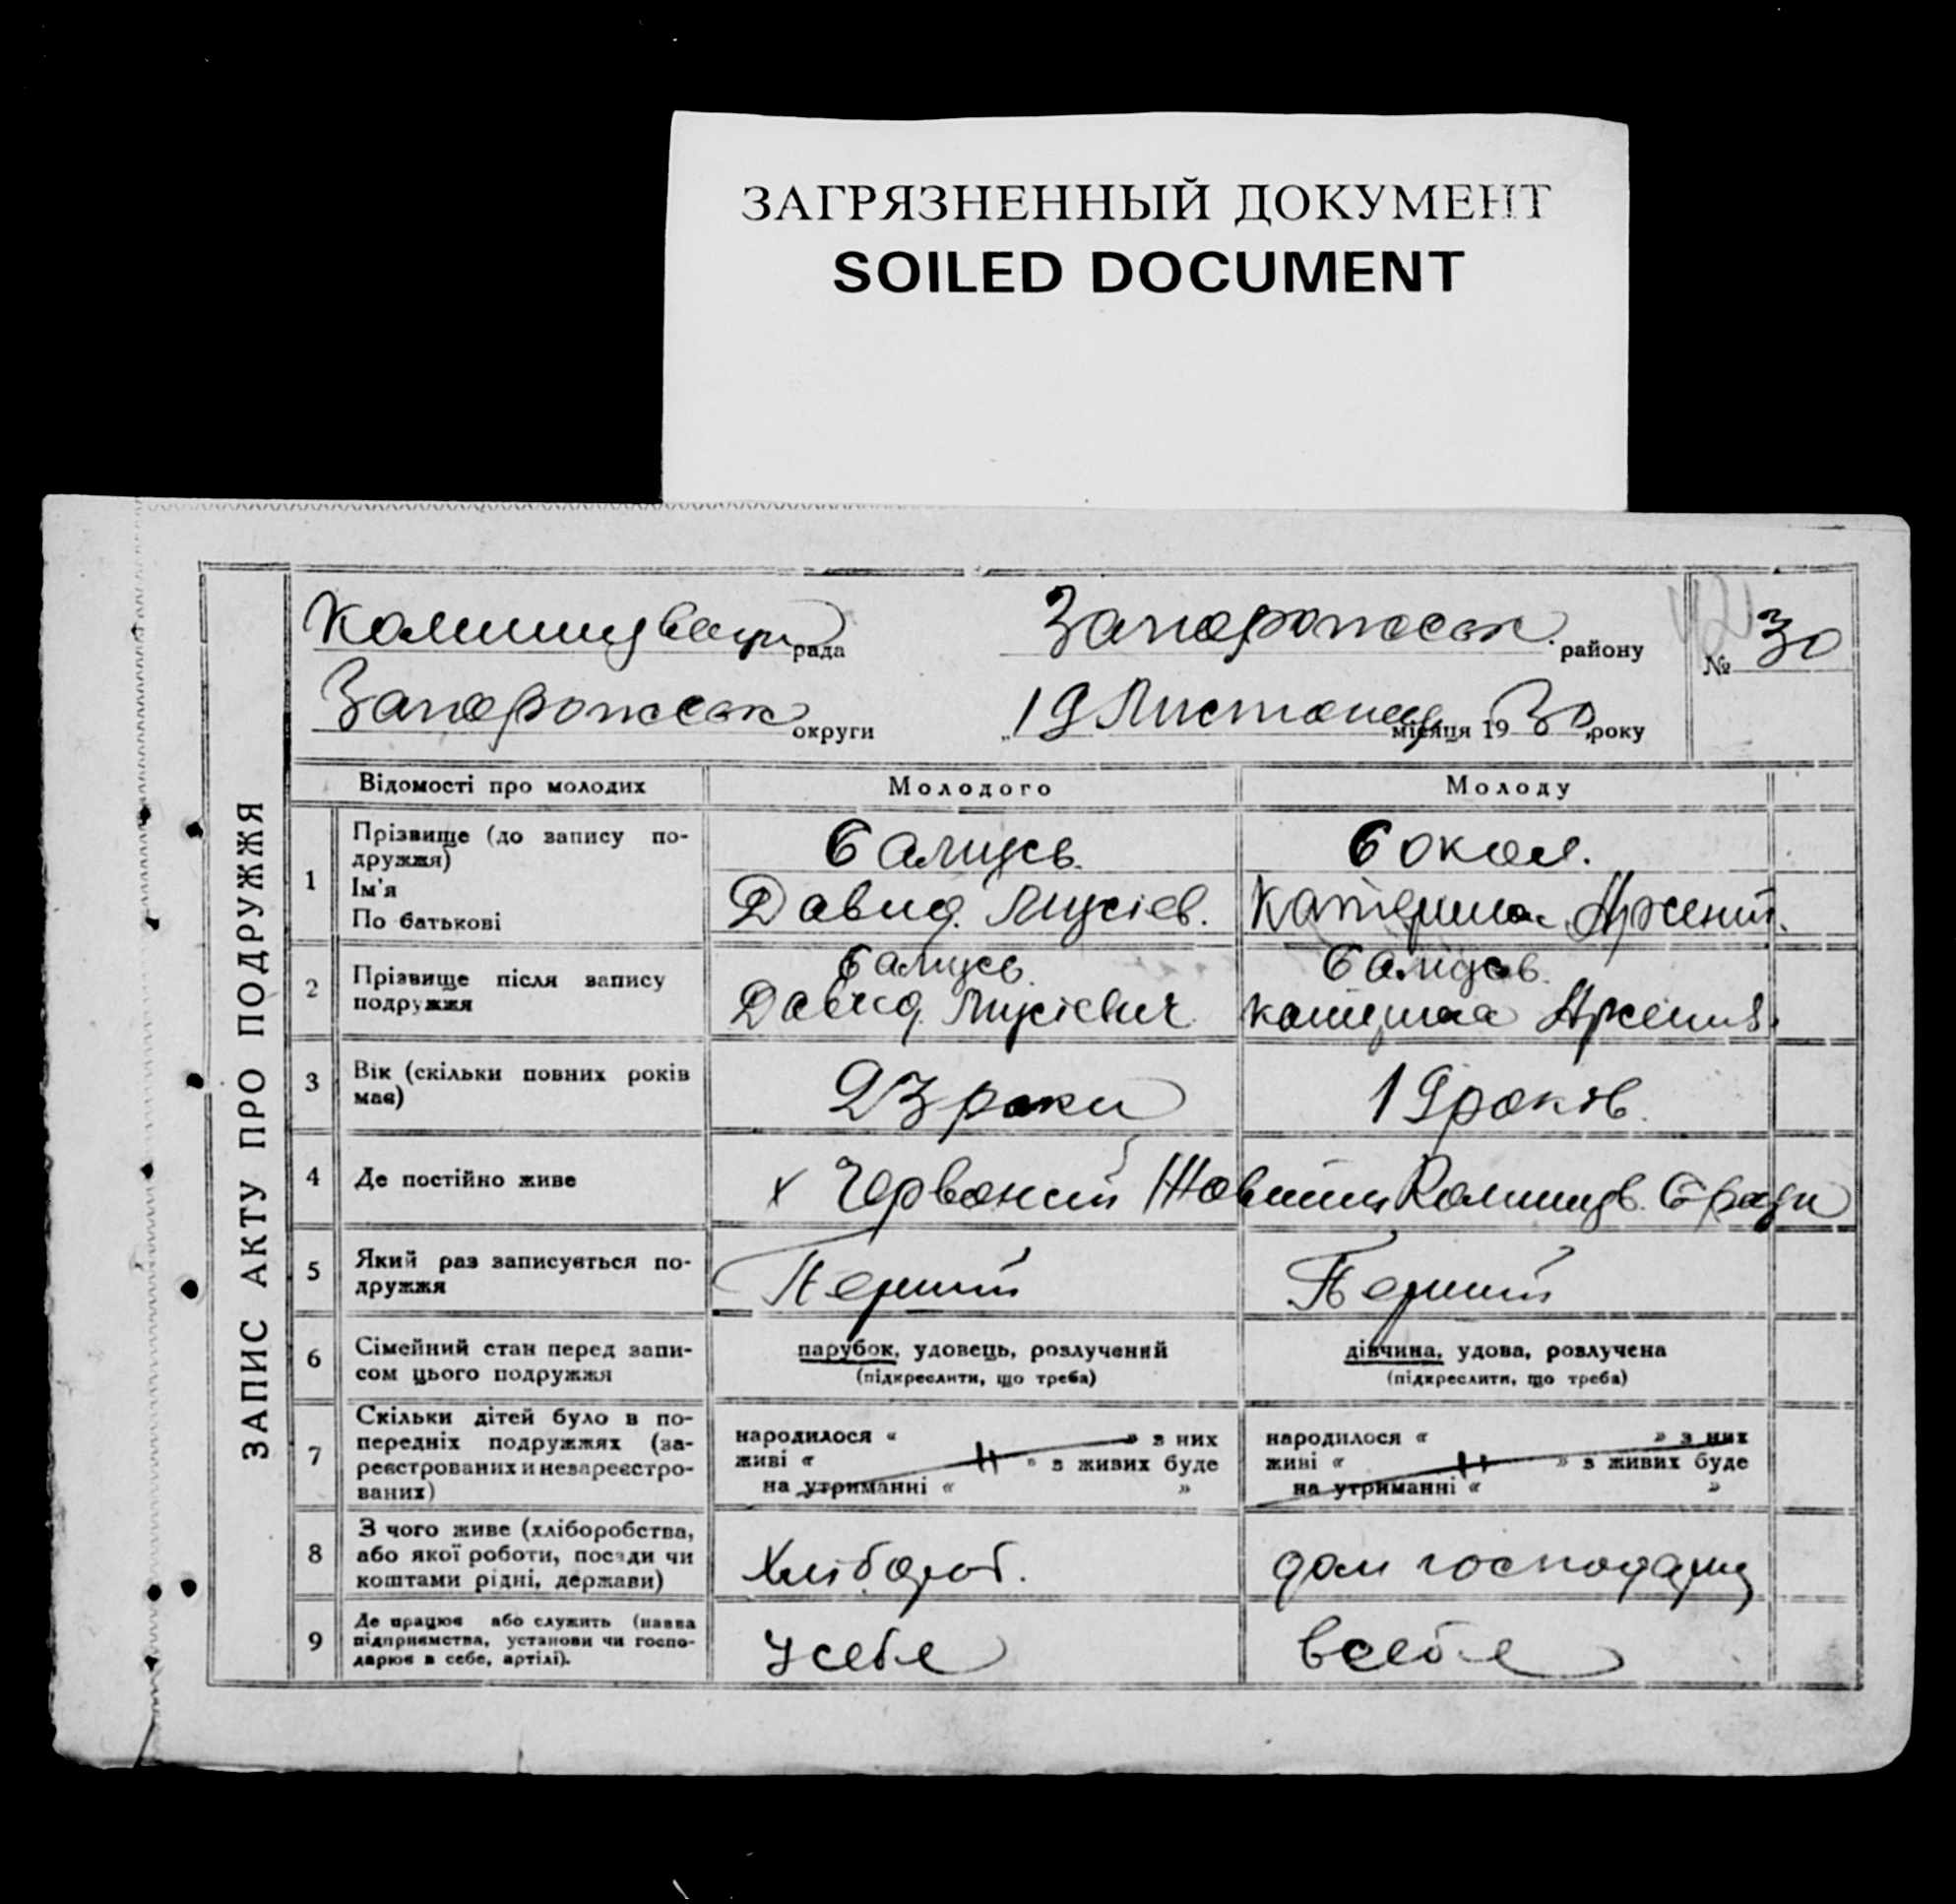 ЗАГРЯЗНЕННЫЙ ДОКУМЕНТ
SOILED DOCUMENT
ЗАПИС АКТУ ПРО ПОДРУЖЖЯ
рада Запорожськ. району № 30
Запорожськ округи „19 Листопада місяця 1930 року
Відомості про молодих Молодого Молоду
1 Прізвище (до запису по-
дружжя)
Ім'я
По батькові
Сокол.
Давид.
Катерина
2 Прізвище після запису
подружжя
Давид
Катерина
3 Вік (скільки повних років
має)
23 роки 19 років
4 Де постійно живе х Червоний Жовтень
5 Який раз записується по-
дружжя
Перший Перший
6 Сімейний стан перед запи-
сом цього подружжя
парубок, удовець, розлучений
(підкреслити, що треба)
дівчина, удова, розлучена
(підкреслити, що треба)
7 Скільки дітей було в по-
передніх подружжях (за-
реєстрованих и незареєстро-
ваних)
народилося « » з них
живі « » з живих буде
на утриманні « »
народилося « » з них
живі « » з живих буде
на утриманні « »
8 З чого живе (хліборобства,
або якої роботи, посади чи
коштами рідні, держави)
Хлібороб. дом господарка
9 Де працює або служить (назва
підприємства, установи чи госпо-
дарює в себе, артілі).
У себе в себе